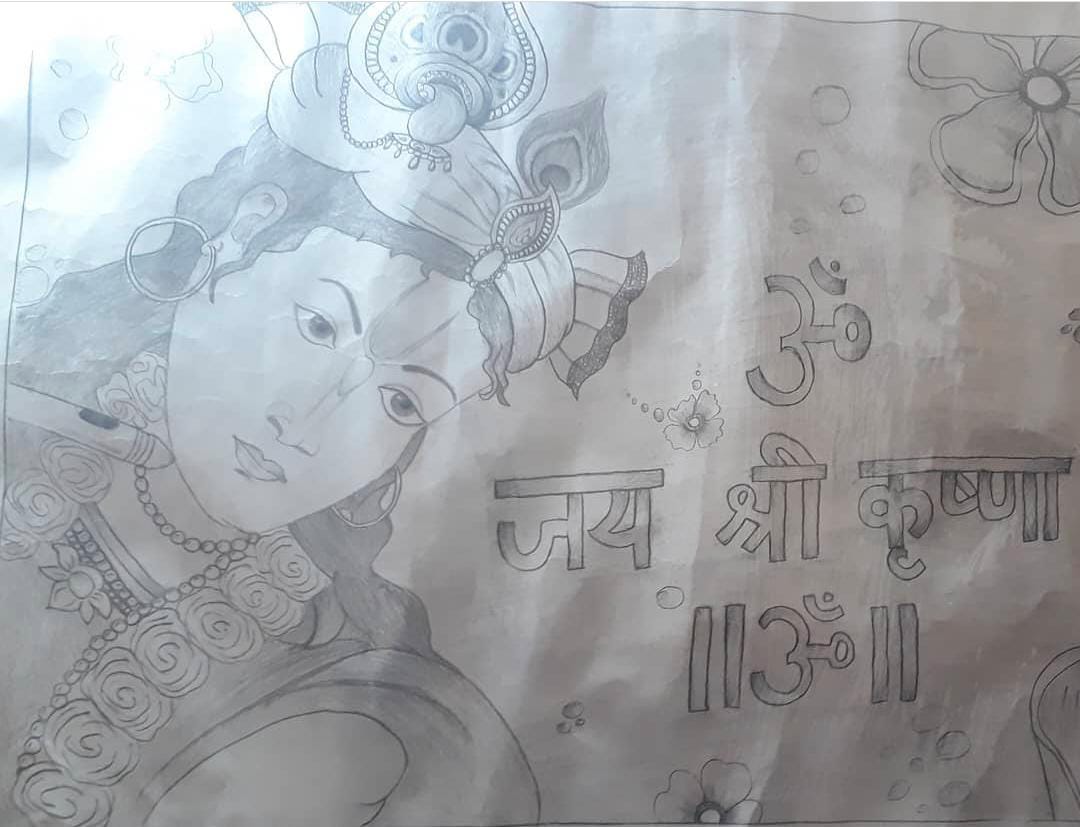 ॐ
जय श्री कृष्णा
||ॐ||